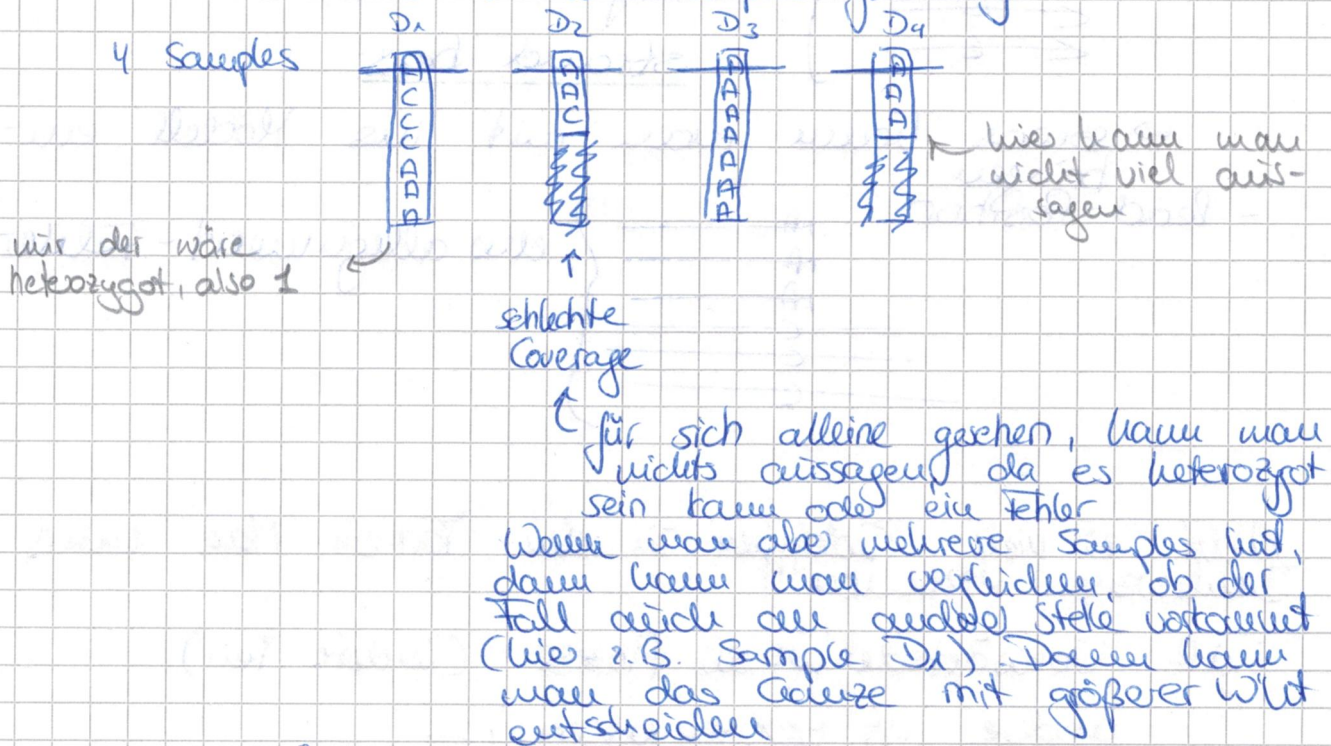 D1 D2 D3 D4
4 Samples
A A A A
C A A A
C C A A
C A
A A
A A
A A
hier kann man
nicht viel aus-
sagen
nur der wäre
heterozygot, also 1
↑
schlechte
Coverage
für sich alleine gesehen, kann man
nichts aussagen, da es heterozygot
sein kann oder ein Fehler
Wenn man aber mehrere Samples hat,
dann kann man vergleichen, ob der
Fall auch an andere Stelle vorkommt
(hier z.B. Sample D1). Dann kann
man das Ganze mit größerer W'keit
entscheiden